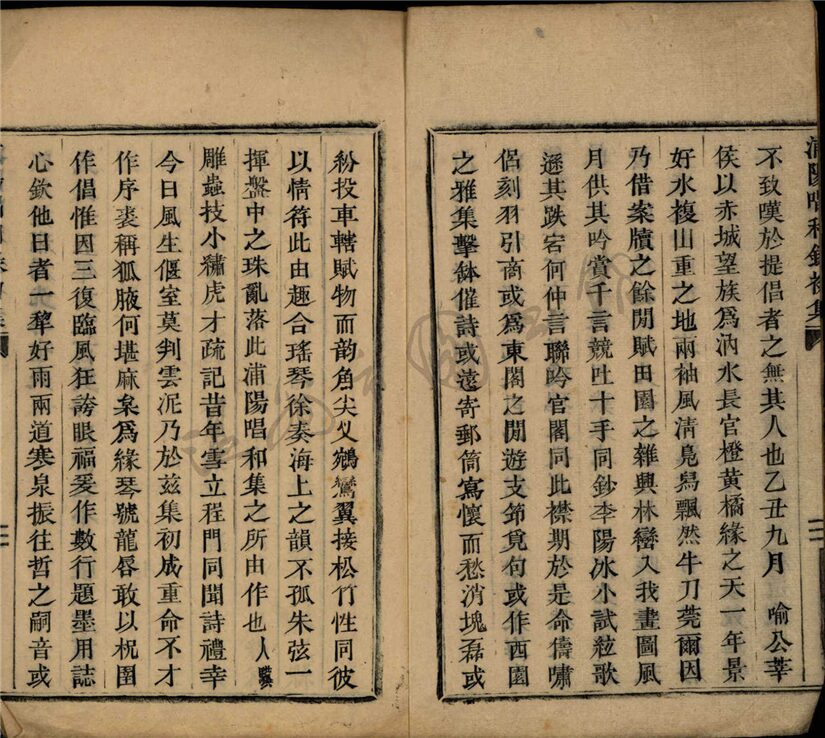 浦陽唱和鈔初集
不致嘆於提倡者之無其人也乙丑九月　喻公莘
侯以赤城望族爲汭水長官橙黃橘緣之天一年景
好水複山重之地兩袖風淸鳧舄飄然牛刀莞爾因
乃借案牘之餘閒賦田園之雜興林巒入我畫圖風
月供其吟賞千言競吐十手同鈔李陽冰小試絃歌
遜其跌宕何仲言聯吟官閣同此襟期於是命儔嘯
侶刻羽引商或爲東閣之閒遊支筇覓句或作西園
之雅集擊鉢催詩或遠寄郵筒寫懷而愁消塊磊或
紛投車轄賦物而韵角尖乂鵷鸞翼接松竹性同彼
以情符此由趣合瑤琴徐奏海上之韻不孤朱弦一
揮盤中之珠亂落此浦陽唱和集之所由作也人驥
雕蟲技小繡虎才疏記昔年雪立程門同聞詩禮幸
今日風生偃室莫判雲泥乃於兹集初成重命不才
作序裘稱狐腋何堪麻枲爲緣琴號龍唇敢以柷圉
作倡惟因三復臨風狂誇眼福爰作數行題墨用誌
心欽他日者一犂好雨兩道寒泉振往哲之嗣音或